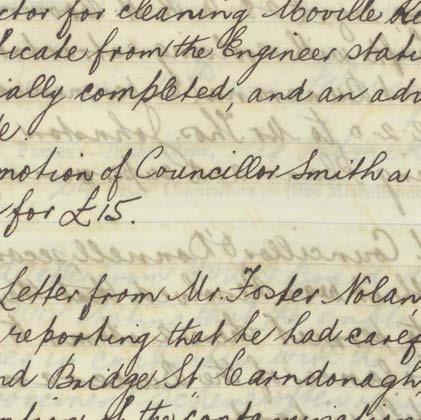 ctor for cleaning Moville
ficate from the Engineer stati
ially completed, and an adv
e.
motion of Councillor Smith a
for £15.
Letter from Mr. Foster Nolan,
reporting that he had caref
nd Bridge St Carndonagh
of the